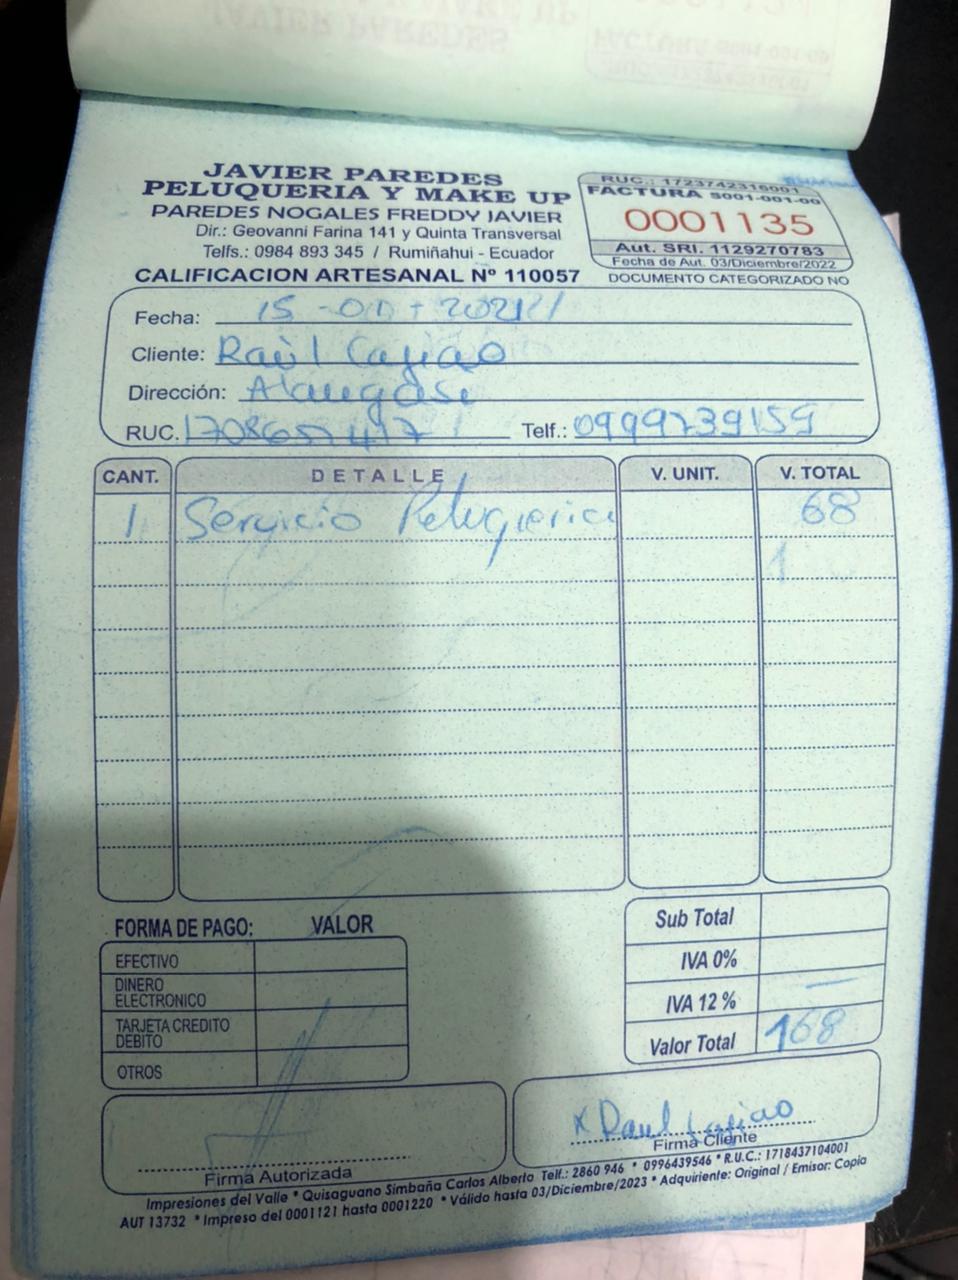 JAVIER PAREDES
PELUQUERIA Y MAKE UP
PAREDES NOGALES FREDDY JAVIER
Dir.: Geovanni Farina 141 y Quinta Transversal
Telfs.: 0984 893 345 / Rumiñahui - Ecuador
CALIFICACION ARTESANAL Nº 110057
RUC.: 1723742316001
FACTURA S001-001-00
0001135
Aut. SRI. 1129270783
Fecha de Aut. 03/Diciembre/2022
DOCUMENTO CATEGORIZADO NO
Fecha: 15
Cliente: Raúl
Dirección: Alangasi
RUC.
Telf.: 0999739159
CANT. DETALLE V. UNIT. V. TOTAL
1 Servicio Peluqueria 68
FORMA DE PAGO: VALOR
EFECTIVO
DINERO ELECTRONICO
TARJETA CREDITO DEBITO
OTROS
Sub Total
IVA 0%
IVA 12 % —
Valor Total 168
Firma Autorizada
X Raul
Firma Cliente
Impresiones del Valle * Quisaguano Simbaña Carlos Alberto Telf.: 2860 946 * 0996439546 * R.U.C.: 1718437104001
AUT 13732 * Impreso del 0001121 hasta 0001220 * Válido hasta 03/Diciembre/2023 * Adquiriente: Original / Emisor: Copia